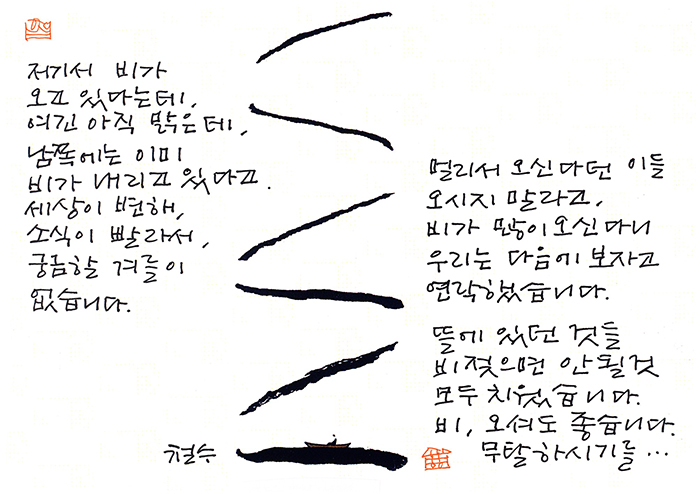 저기서 비가
오고 있다는데,
여긴 아직 맑은데,
남쪽에는 이미
비가 내리고 있다고.
세상이 변해,
소식이 빨라서,
궁금할 겨를이
없습니다.
멀리서 오신다던 이들
오시지 말라고,
비가 많이 오신다니
우리는 다음에 보자고
연락했습니다.
뜰에 있던 것들
비 젖으면 안 될 것
모두 치웠습니다.
비, 오셔도 좋습니다.
무탈하시기를…
철수